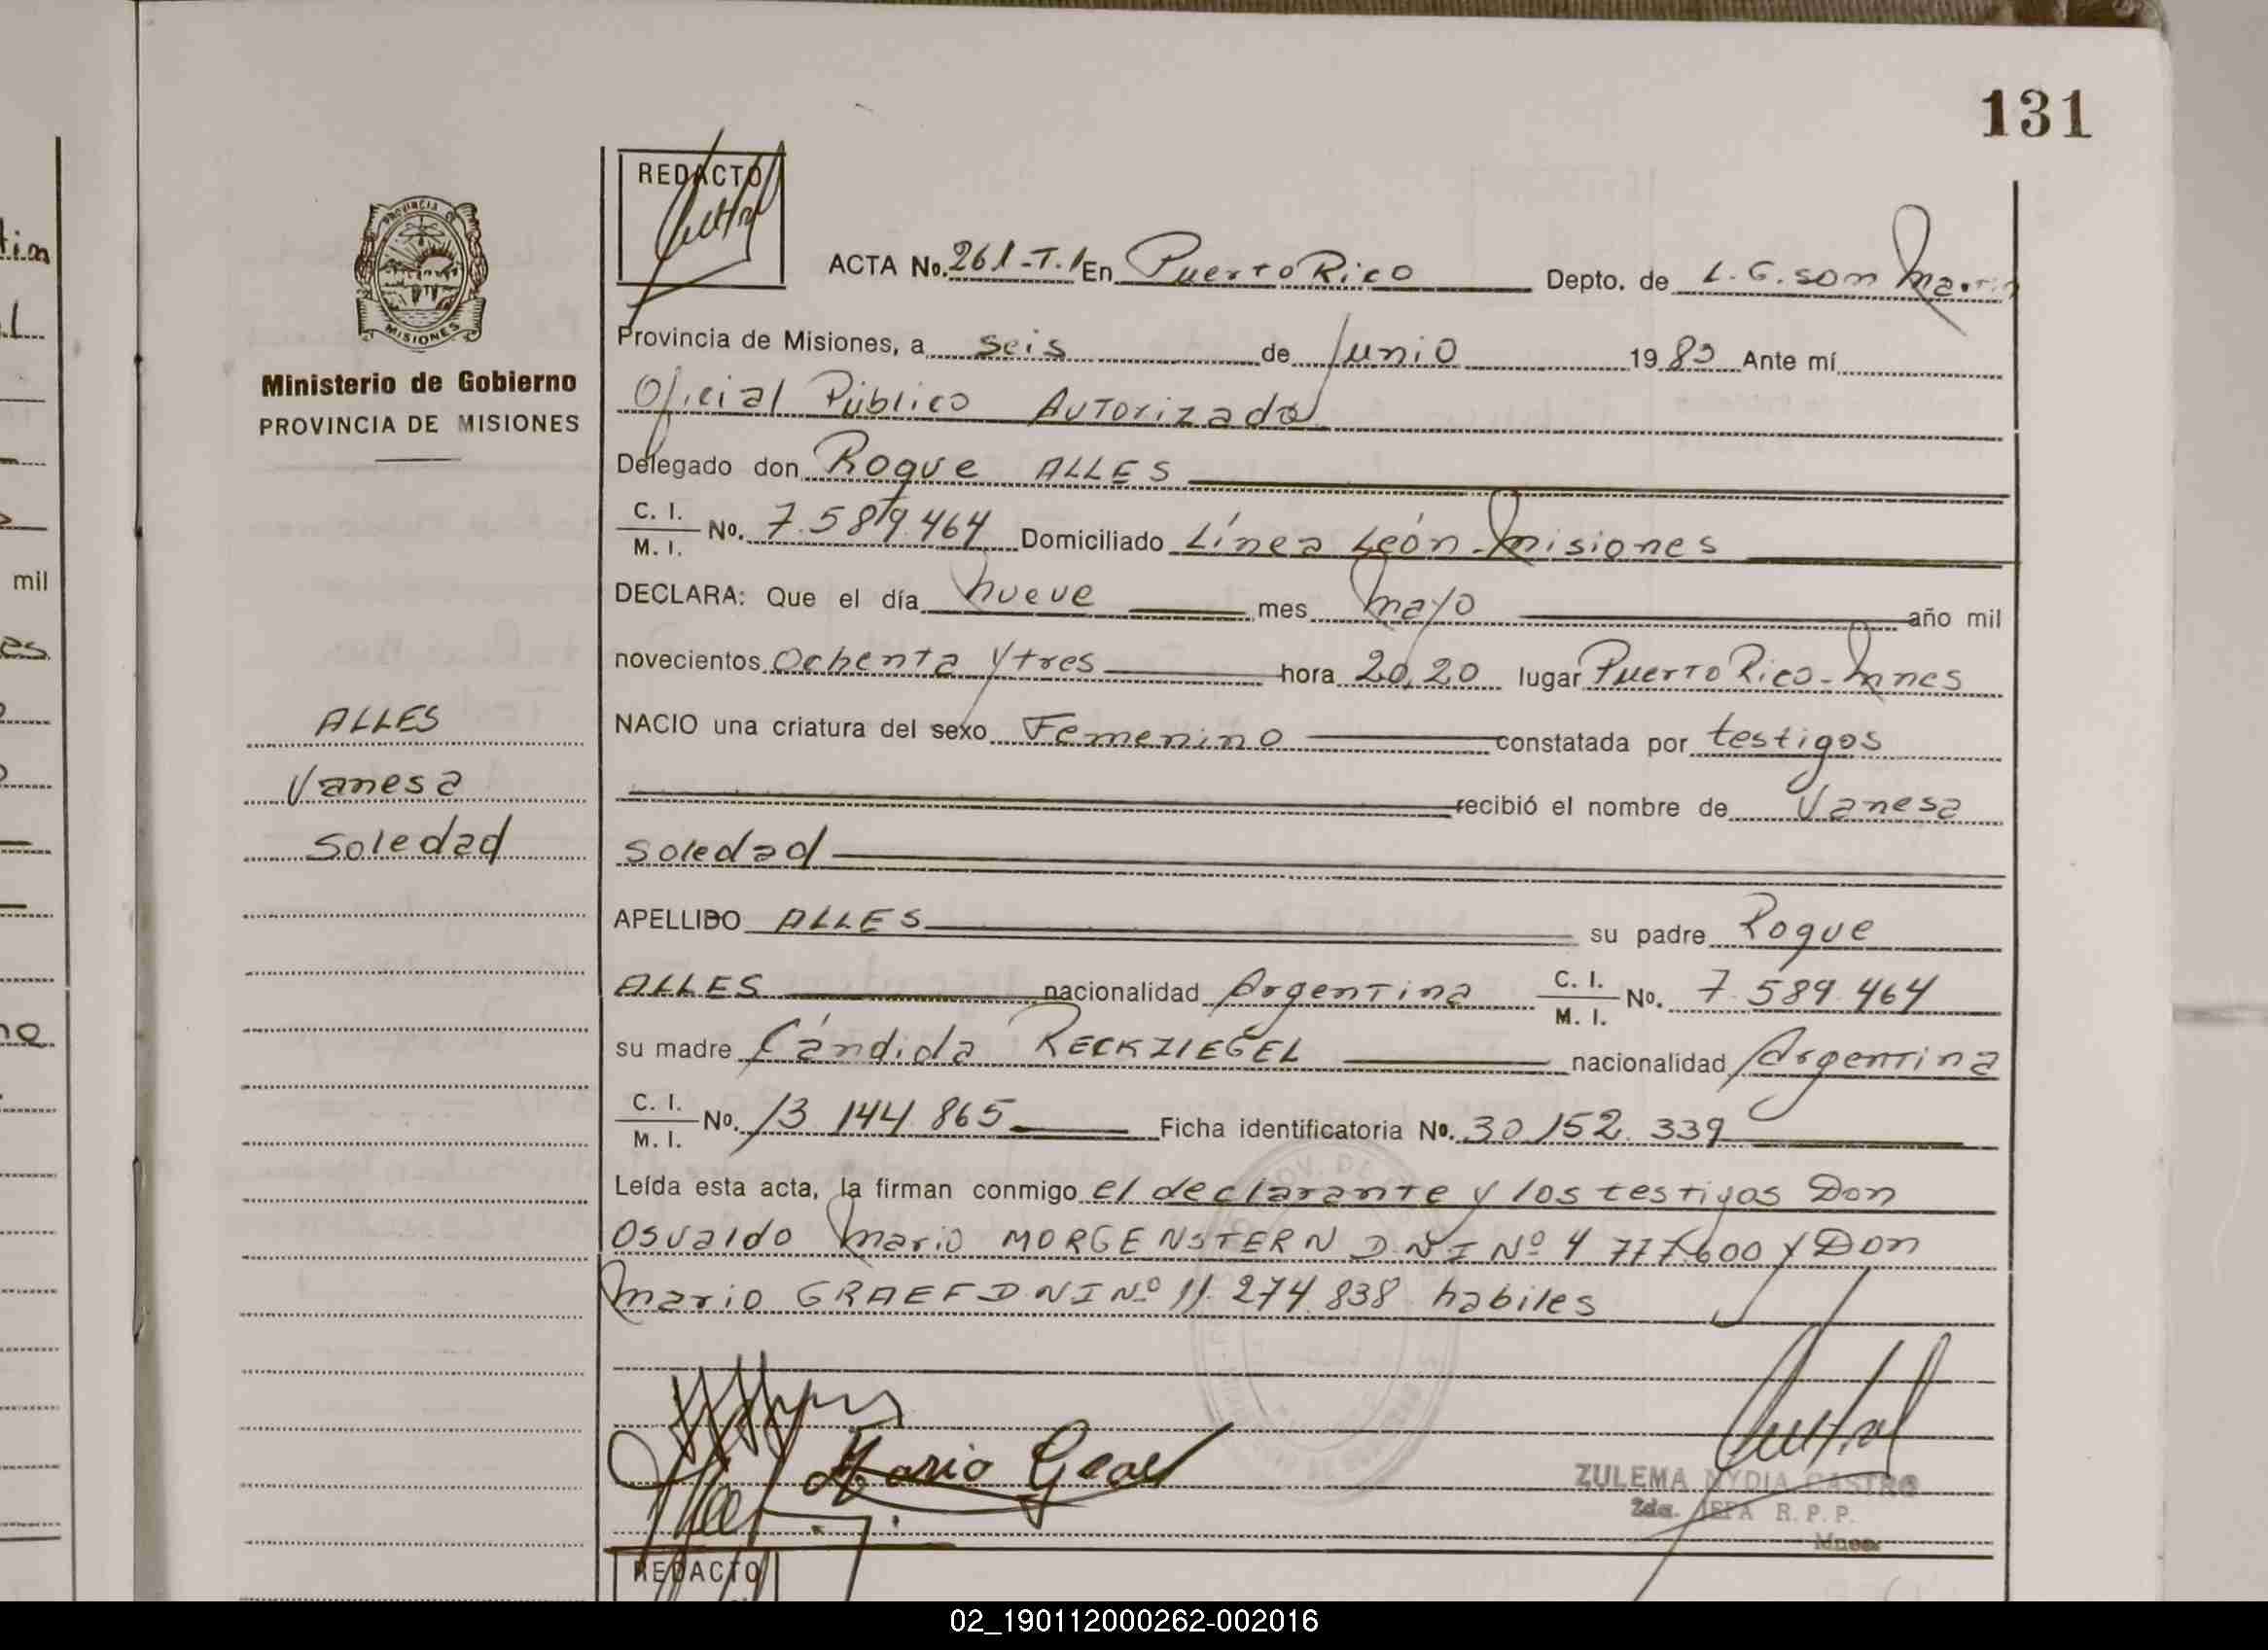 131
REDACTO
ACTA No. 261-T.1 En Puerto Rico Depto. de L.G. san Martin
Provincia de Misiones, a seis de Junio 1983 Ante mí
Oficial Público Autorizado
Delegado don Roque ALLES
C. I. / M. I. No. 7.589.464 Domiciliado Línea León - Misiones
DECLARA: Que el día nueve mes mayo año mil
novecientos Ochenta y tres hora 20,20 lugar Puerto Rico - Mnes
NACIO una criatura del sexo Femenino constatada por testigos
recibió el nombre de Vanesa
Soledad
APELLIDO ALLES su padre Roque
ALLES nacionalidad Argentina C. I. / M. I. No. 7.589.464
su madre Cándida RECKZIEGEL nacionalidad Argentina
C. I. / M. I. No. 13.144.865 Ficha identificatoria No. 30.152.339
Leída esta acta, la firman conmigo el declarante y los testigos Don
Osvaldo Mario MORGENSTERN D.N.I Nº 4.777.600 y Don
Mario GRAEF D.N.I Nº 11.274.838 habiles
Mario Graef
ZULEMA NYDIA CASTRO
2da. JEFA R. P. P.
Mnes.
REDACTO
PROVINCIA DE
MISIONES
Ministerio de Gobierno
PROVINCIA DE MISIONES
ALLES
Vanesa
Soledad
mil
02_190112000262-002016